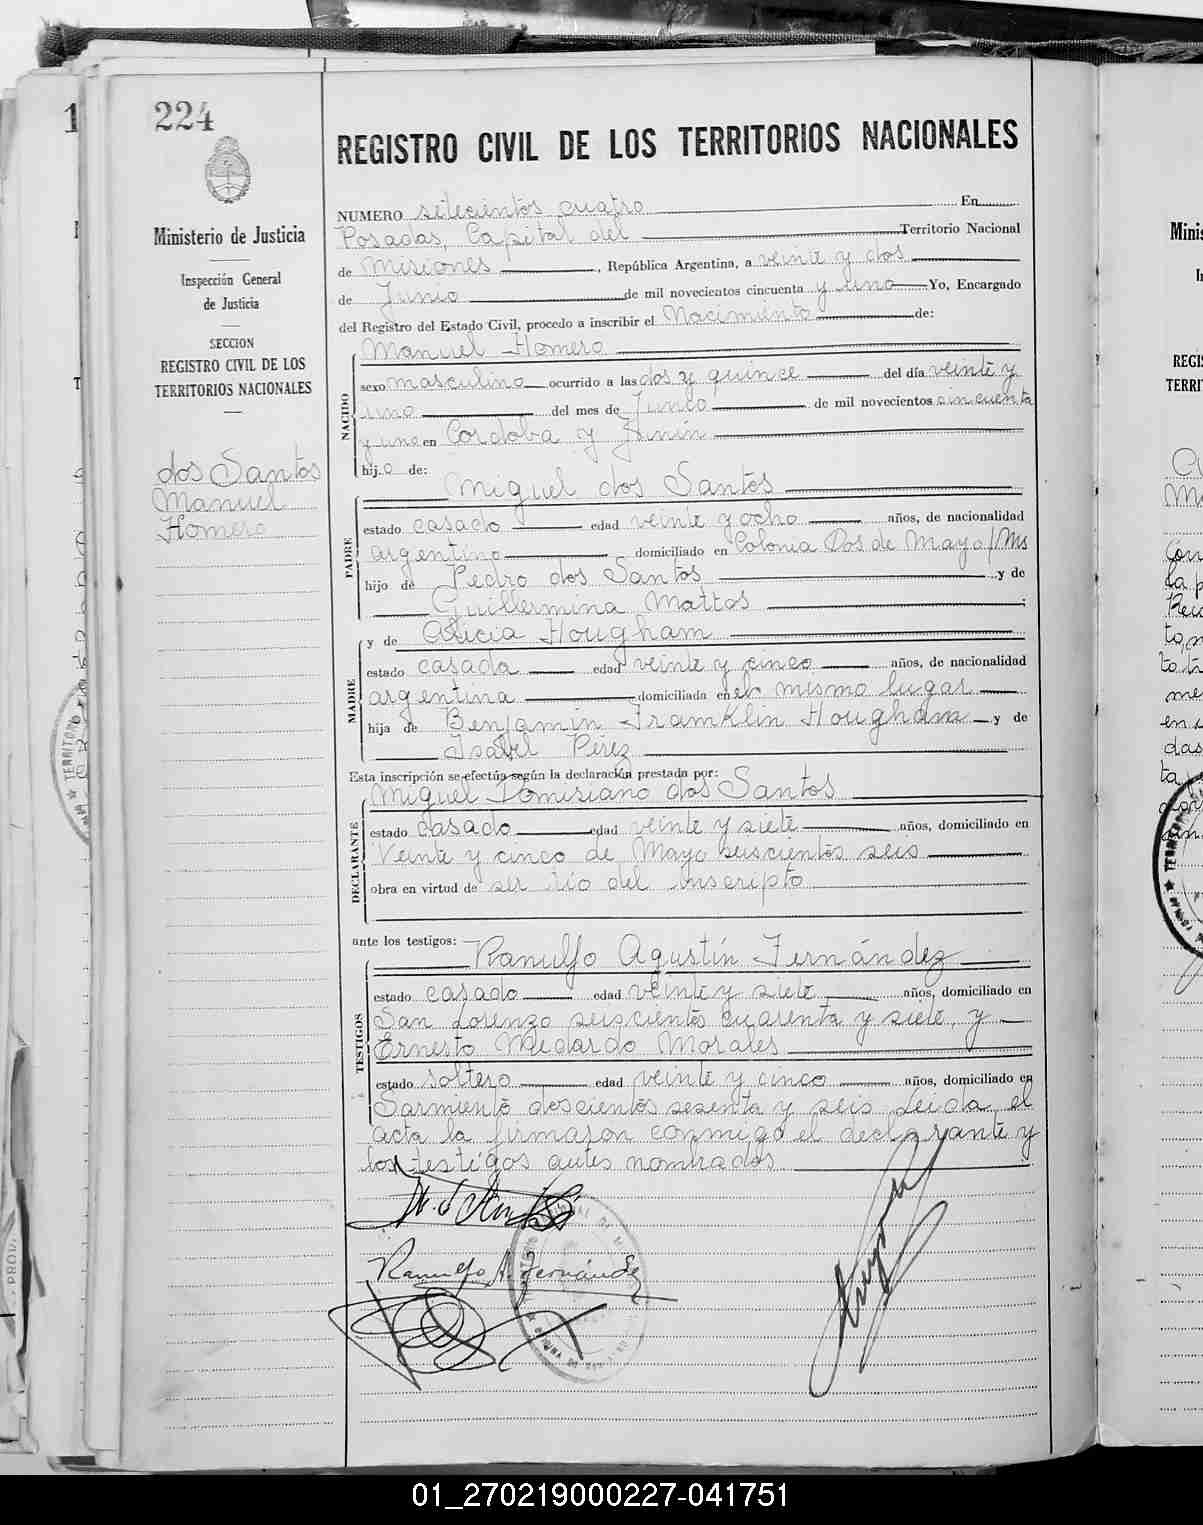 224
Ministerio de Justicia
Inspección General
de Justicia
SECCION
REGISTRO CIVIL DE LOS
TERRITORIOS NACIONALES
dos Santos
Manuel
Homero
REGISTRO CIVIL DE LOS TERRITORIOS NACIONALES
NUMERO setecientos cuatro En
Posadas, Capital del Territorio Nacional
de Misiones, República Argentina, a veinte y dos
de Junio de mil novecientos cincuenta y uno Yo, Encargado
del Registro del Estado Civil, procedo a inscribir el Nacimiento de:
NACIDO
Manuel Homero
sexo masculino ocurrido a las dos y quince del día veinte y
uno del mes de Junio de mil novecientos cincuenta
y uno en Cordoba y Junín
hijo de:
PADRE
Miguel dos Santos
estado casado edad veinte y ocho años, de nacionalidad
argentino domiciliado en Colonia Dos de Mayo/Ms
hijo de Pedro dos Santos y de
Guillermina Mattos;
MADRE
y de Alicia Hougham
estado casada edad veinte y cinco años, de nacionalidad
argentina domiciliada en el mismo lugar
hija de Benjamin Framklin Hougham y de
Isabel Pérez
Esta inscripción se efectúa según la declaración prestada por:
DECLARANTE
Miguel Domisiano dos Santos
estado casado edad veinte y siete años, domiciliado en
Veinte y cinco de Mayo seiscientos seis
obra en virtud de ser tío del inscripto
ante los testigos: Ranulfo Agustín Fernández
TESTIGOS
estado casado edad veinte y siete años, domiciliado en
San Lorenzo seiscientos cuarenta y siete, y
Ernesto Medardo Morales
estado soltero edad veinte y cinco años, domiciliado en
Sarmiento doscientos sesenta y seis Leida, el
acta la firmaron conmigo el declarante y
los testigos antes nombrados
Ranulfo A. Fernández
01_270219000227-041751